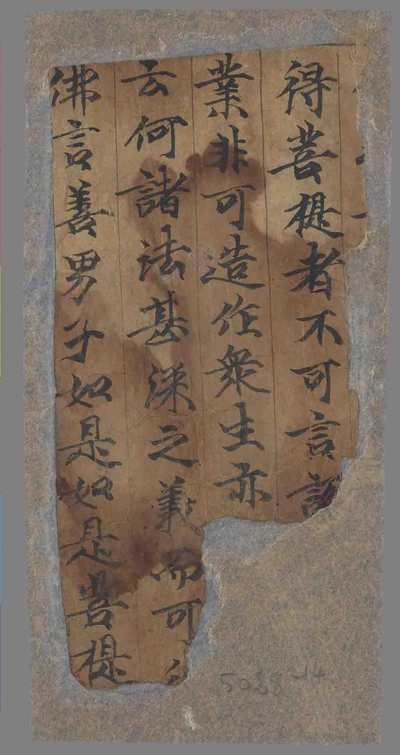 得菩提者不可言說
業非可造作衆生亦
云何諸法甚深之義而可
佛言善男子如是如是菩提
5028-14